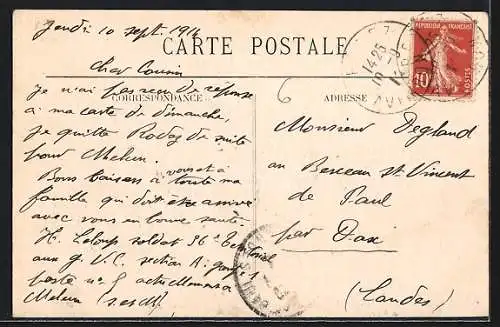 Jeudi 10 sept. 1914
CARTE POSTALE
Cher Cousin
je n'ai pas reçu de réponse
CORRESPONDANCE
à ma carte de dimanche,
je quitte Rodez de suite
pour Melun.
Bons baisers à vous et à
toute ma
famille qui doit être arrivée
avec vous en bonne santé
H. Leloup soldat 36e Territorial
aux G. V. C. section A
poste no 5
Melun (S. et M.)
6
ADRESSE
Monsieur Degland
au Berceau St Vincent
de Paul
par Dax
(Landes)
REPUBLIQUE FRANÇAISE
10c
POSTES
14-25